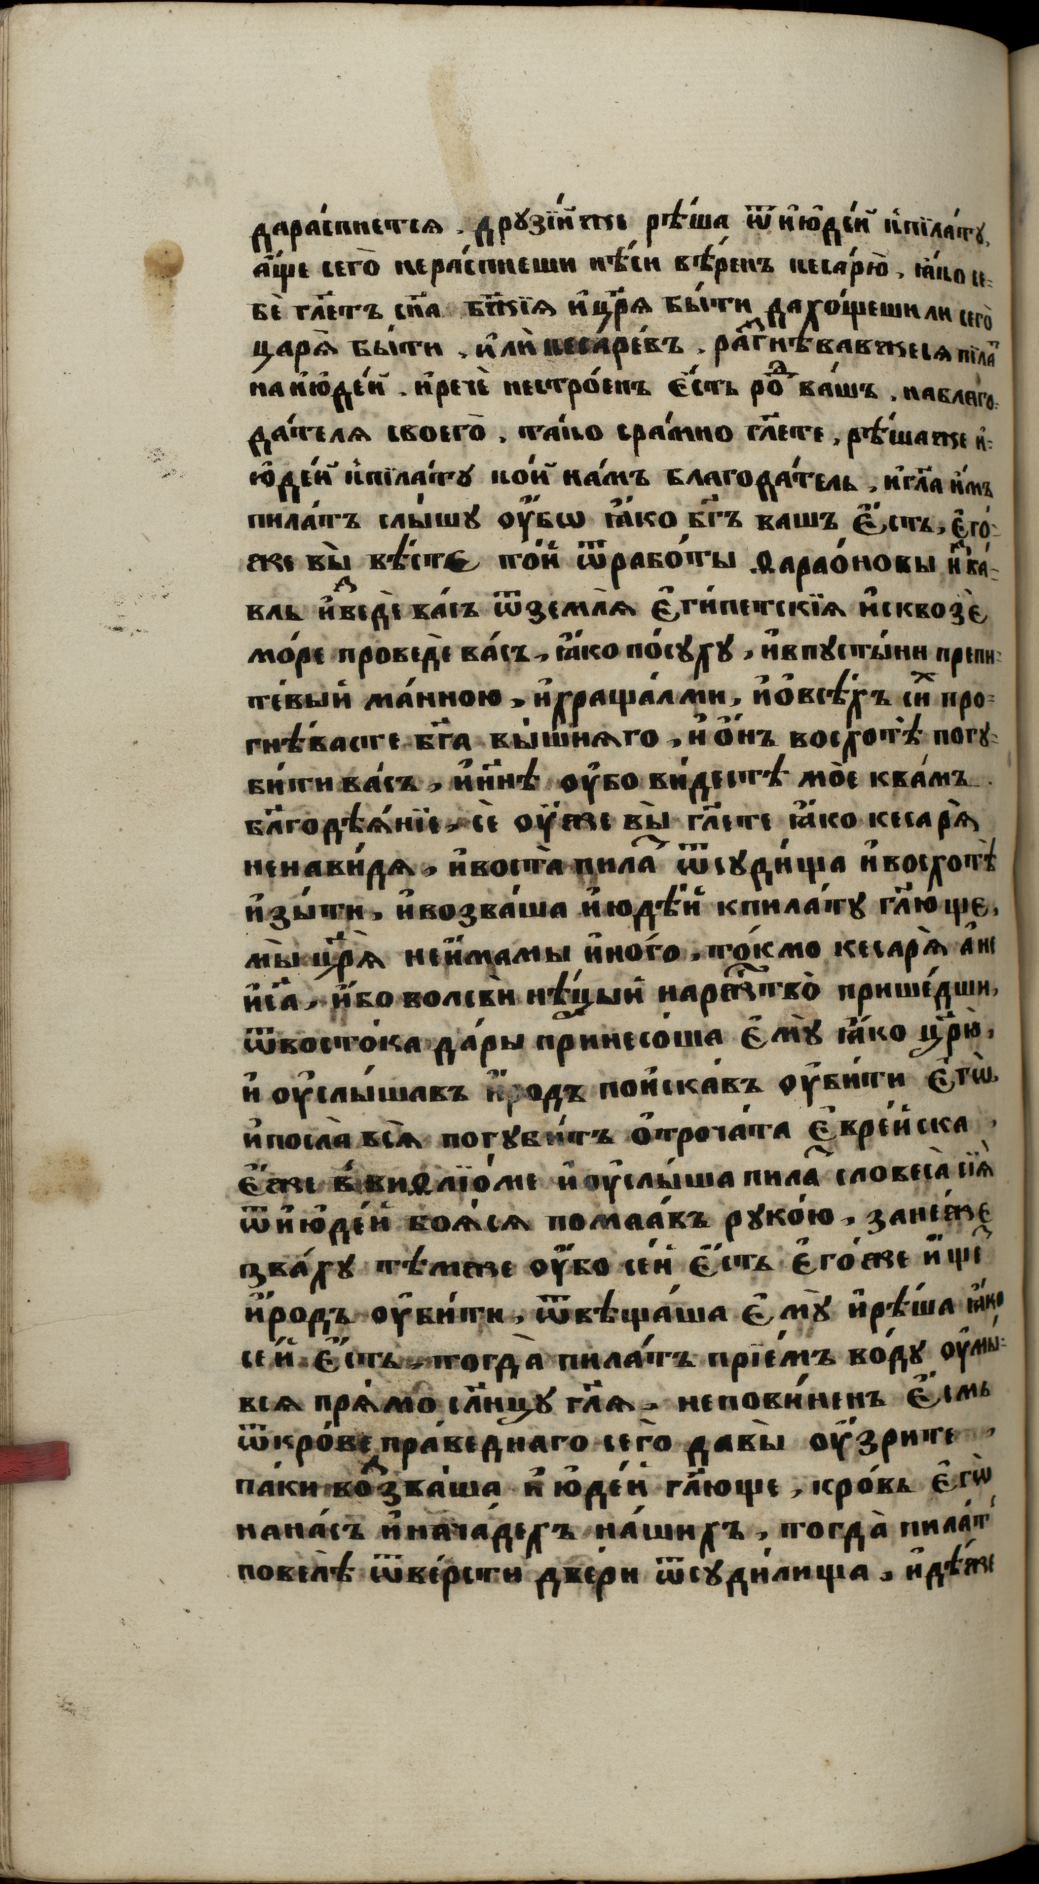 дара́спнетсѧ . дрꙋзі́и҆же рѣ́ша ѿ и҆ю҆де́й кпїла́тꙋ,
а҆́ще сего̀ нера́спнеши нѣ́си вѣ́ренъ кеса́рю̀ . ꙗ҆́ко се-
бѐ гл҃етъ сн҃а бж҃їѧ и҆цр҃ѧ бы́ти дахо́щешили сего̀
царѧ̀ бы́ти . и҆лѝ кеса́рев̾ъ . ра́ꙁгнѣвавжесѧ піла́т
на и҆ю҆де́й . и҆речѐ нестро́енъ є҆́сть ро́д ва́шъ . наблаго-
да́телѧ своего̀ . та́ко сра́мно гл҃ете , рѣ́шаже и҆-
ю҆де́й кпїла́тꙋ ко́й на́мъ благода́тель , и҆гл҃а и҆́мъ
пила́тъ слы́шꙋ ᲂу҆́бѡ ꙗ҆́ко бг҃ъ вашъ є҆́сть , є҆го́-
же вы̀ вѣ́сте то́й ѿрабо́ты ѳарао́новы и҆ꙁба́-
вль и҆ꙁведѐ ва́съ ѿꙁемлѧ̀ є҆ги́петскїѧ и҆сквоꙁѐ
мо́ре проведѐ ва́съ , ꙗ҆́ко по́сꙋхꙋ , и҆впꙋсты́ни препи-
те́вый ма́нною , и҆храща́лми , и҆ѻ҆всѣ́хъ си́х про-
гнѣ́васте бг҃а вы́шнѧго , и҆ ѻ҆́нъ восхотѣ̀ погꙋ-
би́ти ва́съ , и҆нн҃ѣ ᲂу҆бо ви́дестѣ мо̀е ква́мъ
бл҃годѣѧ́нїе , сѐ ᲂу҆́же вы̀ гл҃ете ꙗ҆́ко кесарѧ̀
ненави́дѧ , и҆воста̀ пила́т ѿсꙋди́ща и҆восхотѣ̀
и҆ꙁы́ти , и҆воꙁва́ша и҆юдѣ́й кпила́тꙋ гл҃юще ,
мы̀ цр҃ѧ̀ неи҆́мамы и҆но́го , то́кмо кесарѧ̀ а҆не
и҆іс҃а , и҆́бо волсвѝ нѣ́цый наражⷭ҇тво̀ прише́дши ,
ѿвосто́ка да́ры принесо́ша є҆мꙋ̀ ꙗ҆́ко цр҃ю̀ ,
и҆ ᲂу҆слы́шавъ и҆́родъ пои҆ска́въ ᲂу҆би́ти є҆гѡ̀ ,
и҆посла̀ всѧ̀ погꙋби́тъ ѻ҆троча́та є҆вре́йска ,
є҆́же в́виѳлїо́ме и҆ ᲂу҆слы́ша пила́т словеса̀ сїѧ̀
ѿ и҆ю҆де́й боѧ́сѧ помаа́въ рꙋко́ю , ꙁане́же
ꙁва́хꙋ тѣ́мже ᲂу҆́бо се́й є҆́сть є҆го́же и҆́ще́т
и҆́родъ ᲂу҆би́ти , ѿвѣща́ша є҆мꙋ̀ и҆рѣ́ша ꙗ҆́ко
се́й є҆́сть , тогда̀ пила́тъ прїе́мъ во́дꙋ ᲂу҆мы́-
всѧ прѧ́мо сл҃нцꙋ гл҃ѧ , непови́ненъ є҆́смь
ѿкро́ве пра́веднаго сего̀ давы̀ ᲂу҆́ꙁрите ,
па́ки во́ꙁꙁва́ша и҆ ю҆де́й гл҃юще , кро́вь є҆гѡ̀
нана́съ и҆нача́дехъ на́шихъ , тогда̀ пила́т
повелѣ̀ ѿве́рсти две́ри ѿсꙋди́лища , и҆дѣ́же